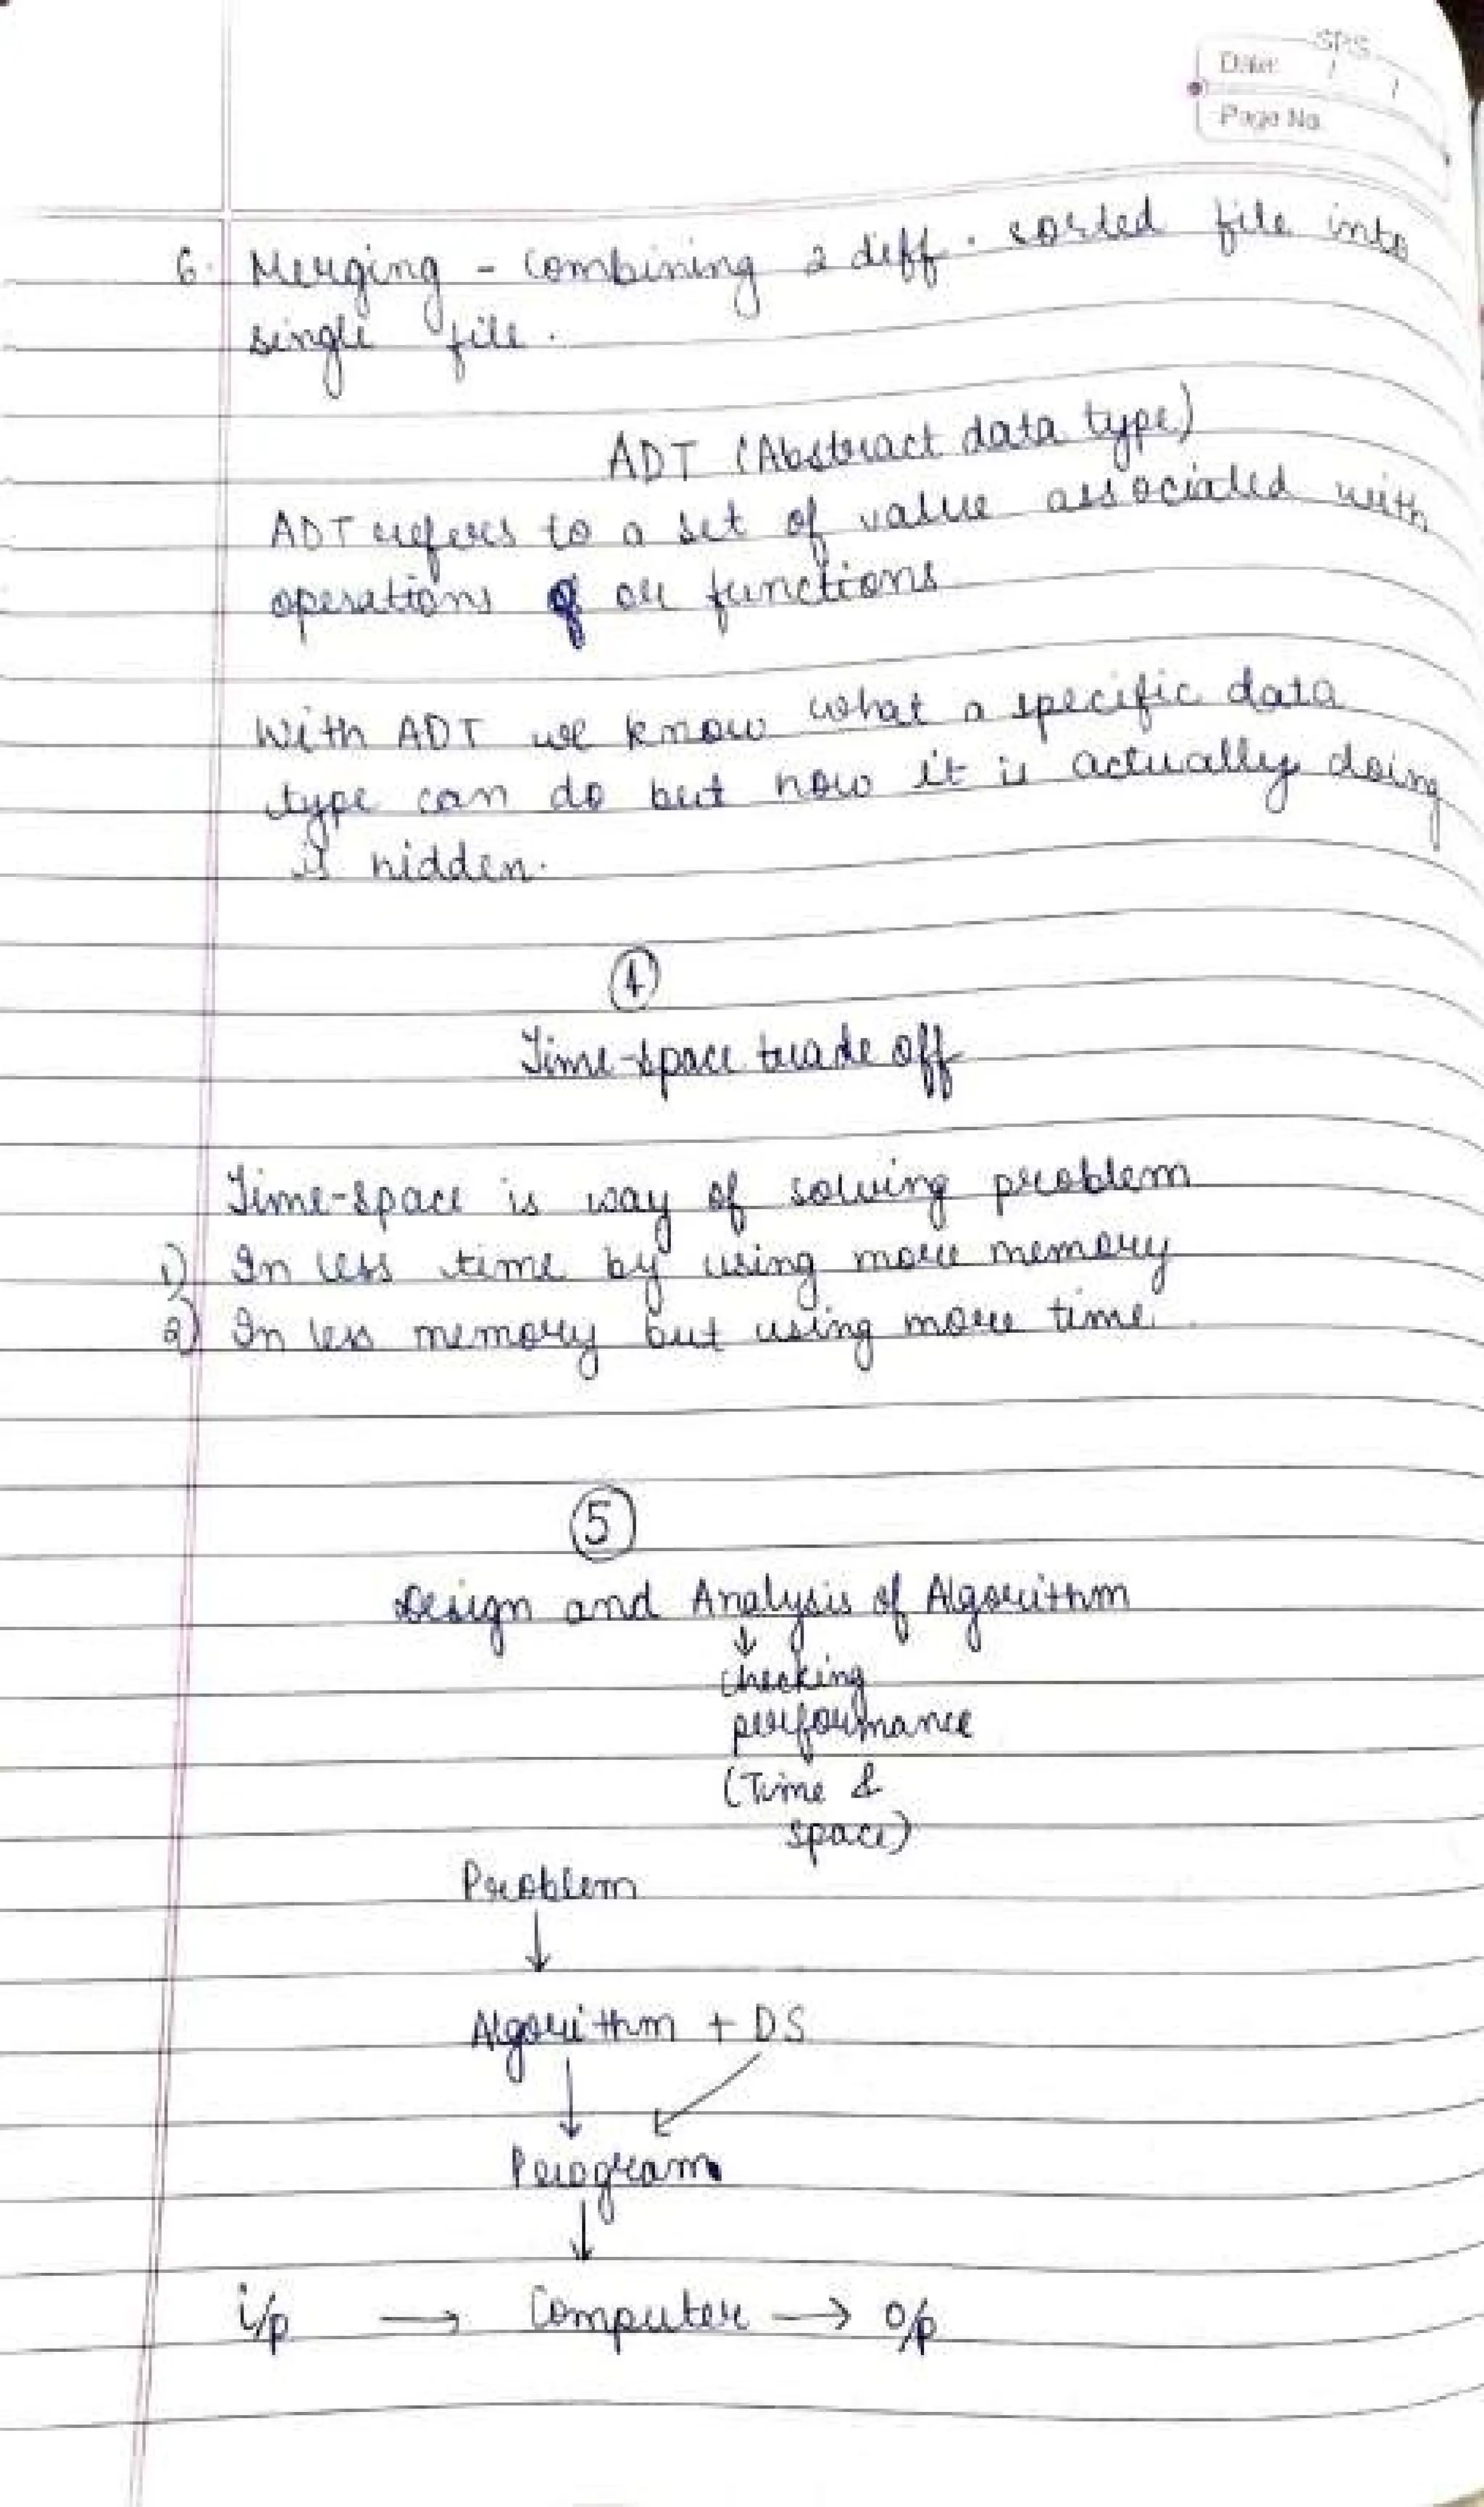 SPS
Date: / /
Page No.
6. Merging - Combining 2 diff. sorted file into
single file.
ADT (Abstract data type)
ADT refers to a set of value associated with
operations or functions
With ADT we know what a specific data
type can do but how it is actually doing
is hidden.
4
Time-space trade off
Time-space is way of solving problem
1) In less time by using more memory
2) In less memory but using more time.
5
Design and Analysis of Algorithm
↓
Checking
performance
(Time &
space)
Problem
↓
Algorithm + DS
↓ ↙
Program
↓
i/p → Computer → o/p